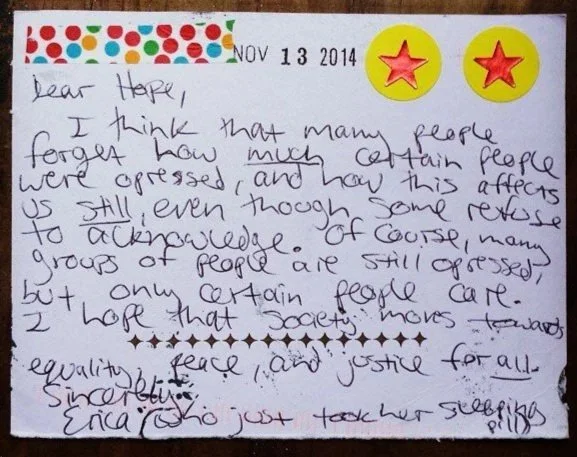 NOV 13 2014
Dear Hope,
I think that many people
forget how much certain people
were opressed, and how this affects
us still, even though some refuse
to acknowledge. Of course, many
groups of people are still opressed,
but only certain people care.
I hope that society moves towards
equality, peace, and justice for all.
Sincerely,
Erica (who just took her sleeping
pill)